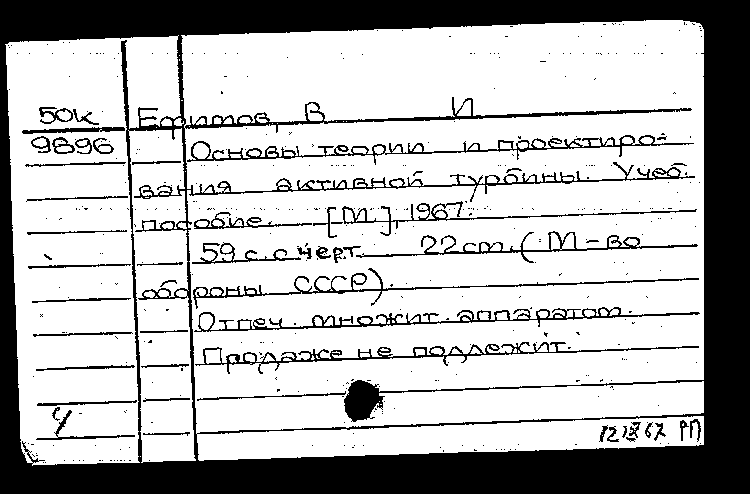 50к Ефимов, В И
9896 Основы теории и проектиро-
вания активной турбины. Учеб.
пособие. [М], 1967.
59 с. с черт. 22 см. (М-во
обороны СССР).
Отпеч. множит. аппаратом.
Продаже не подлежит.
РП